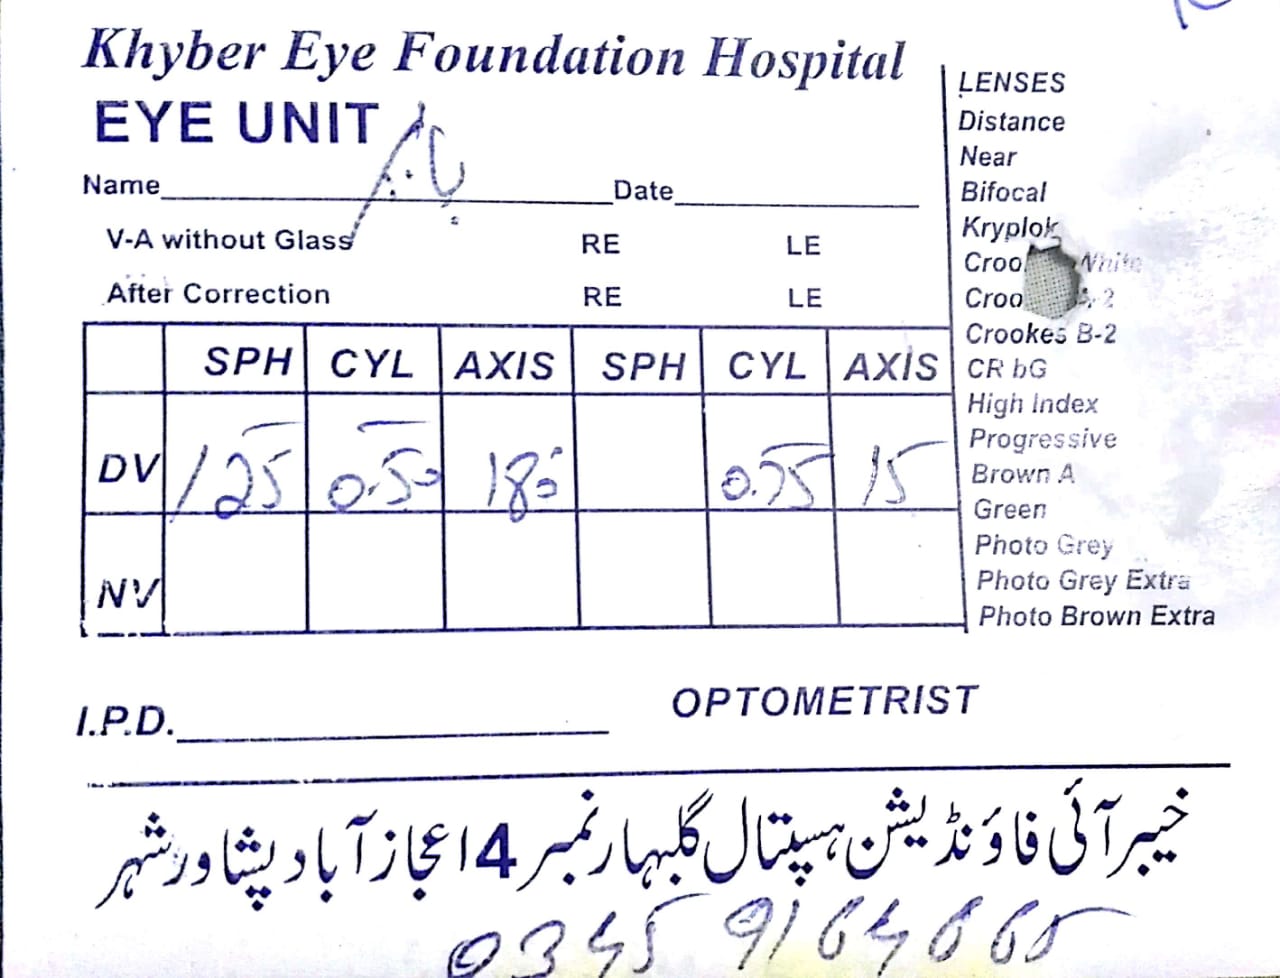 Khyber Eye Foundation Hospital
EYE UNIT
Name Date
V-A without Glass RE LE
After Correction RE LE
SPH CYL AXIS SPH CYL AXIS
DV 125 0.50 180 0.75 15
NV
I.P.D. OPTOMETRIST
LENSES
Distance
Near
Bifocal
Kryplok
Croo White
Croo A-2
Crookes B-2
CR bG
High Index
Progressive
Brown A
Green
Photo Grey
Photo Grey Extra
Photo Brown Extra
خیبر آئی فاؤنڈیشن ہسپتال گلبہار نمبر 4 اعجاز آباد پشاور شہر